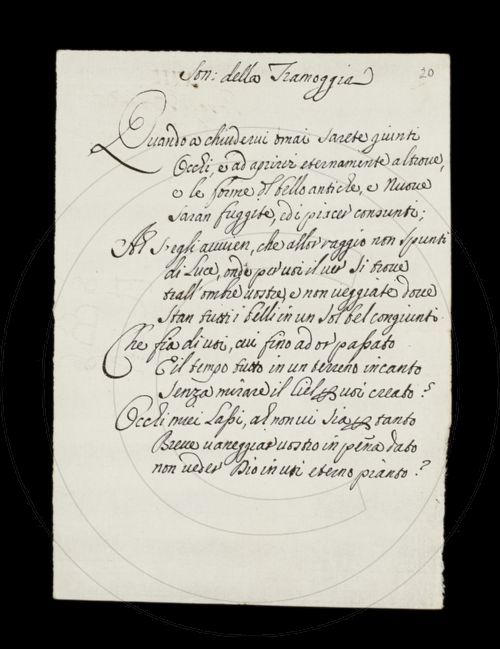 Son: della Tramoggia
20
Quando a chiudervi omai sarete giunti
Occhi, e ad aprirvi eternamente altrove,
e le forme del bello antiche, e Nuove
saran fuggite, ed i piacer consunti;
Ah s'egli avvien, che allor raggio non spunti
di Luce, onde per voi il ver si trove
trall'ombre vostre, e non veggiate dove
stan tutti i belli in un sol bel congiunti.
Che fia di voi, cui fino ad or passato
E il tempo tutto in un terreno incanto
senza mirare il Ciel per voi creato?
Occhi miei Lassi, ah non vi sia per tanto
Breve vaneggiar vostro in pena dato
non veder Dio in un eterno pianto?